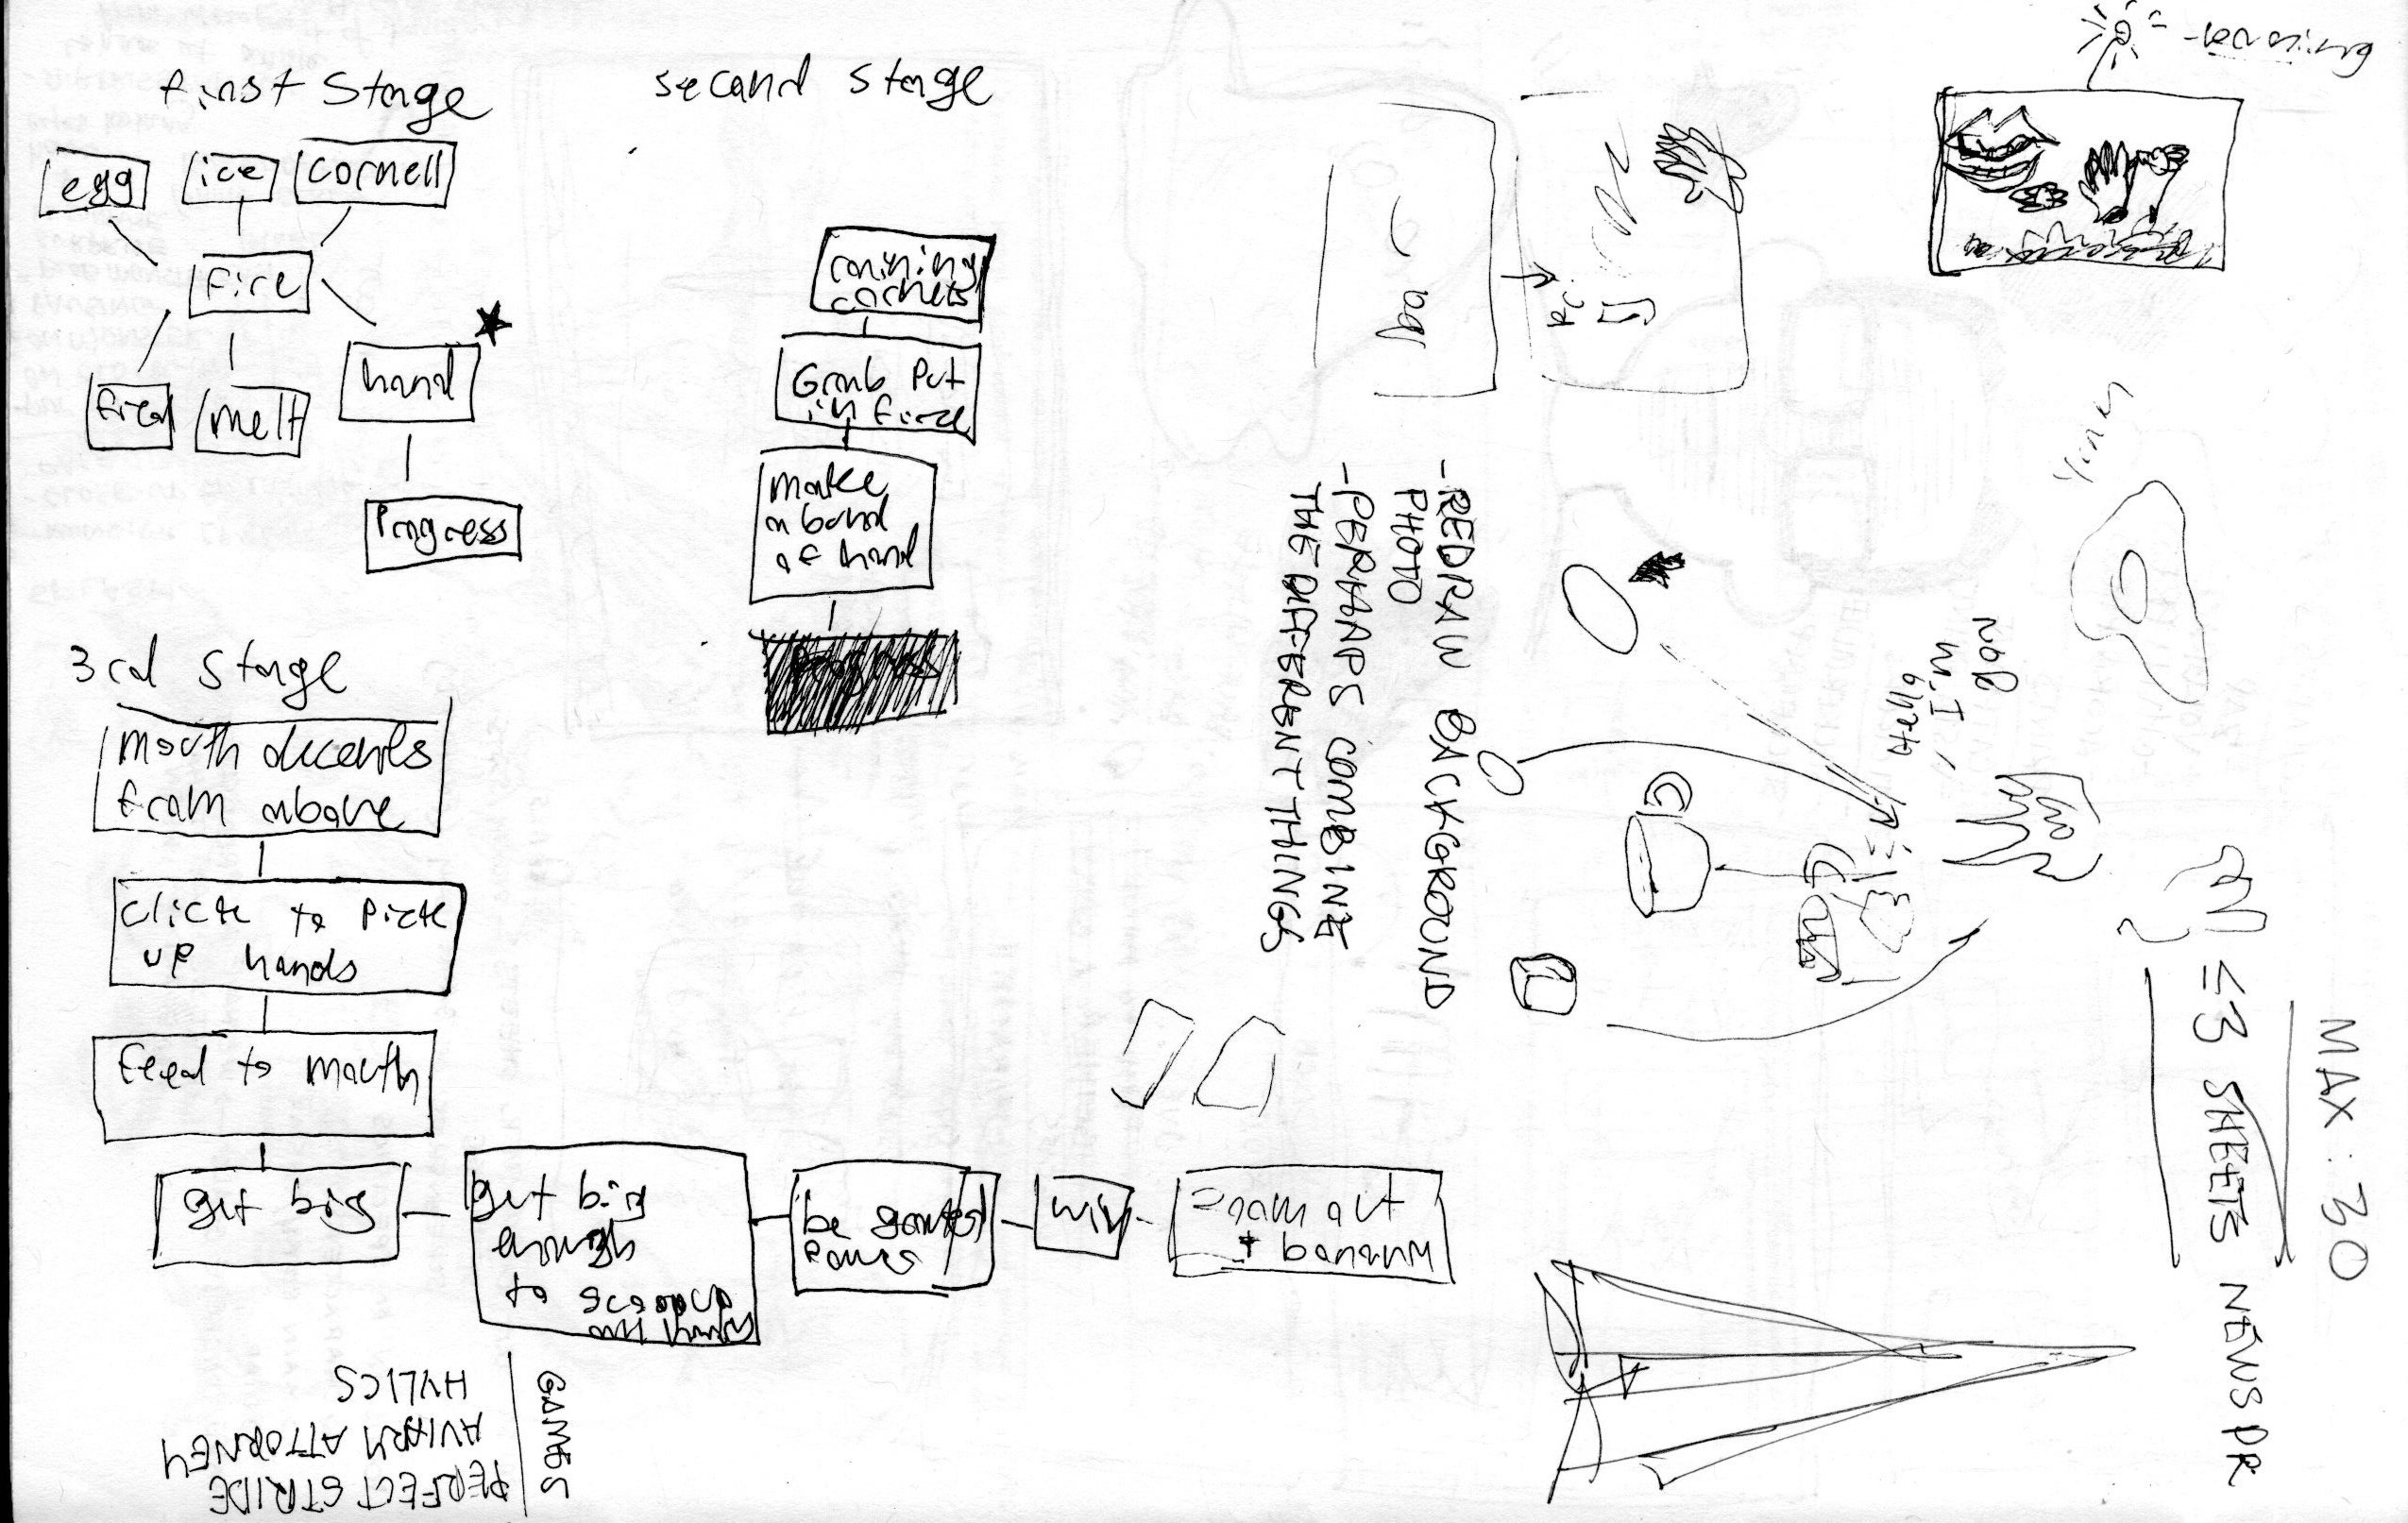 first Stage
egg
ice
cornell
fire
fried
melt
hand
Progress
second stage
Grab Put
in fire
make
a band
of hand
3rd Stage
mouth decents
from above
click to pick
up hands
feed to mouth
get big
get big
enough
to scoop up
all hands
be
win
zoom out
+ banana
GAMES
PERFECT STRIDE
AVIARY ATTORNEY
HYLICS
-REDRAW BACKGROUND
PHOTO
-PERHAPS COMBINE
THE DIFFERENT THINGS
Hello
I'm
MAX: 30
≤3 SHEETS NEWSPR